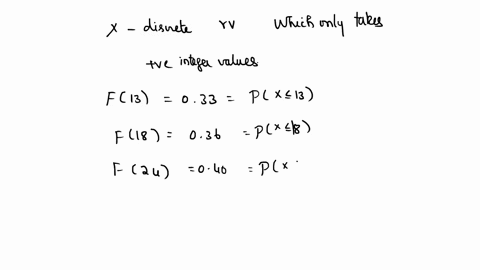 X - disvrete rv Which only takes
+ve integer values
F(13) = 0.33 = P(X ≤ 13)
F(18) = 0.36 = P(X ≤ 18)
F(24) = 0.40 = P(X